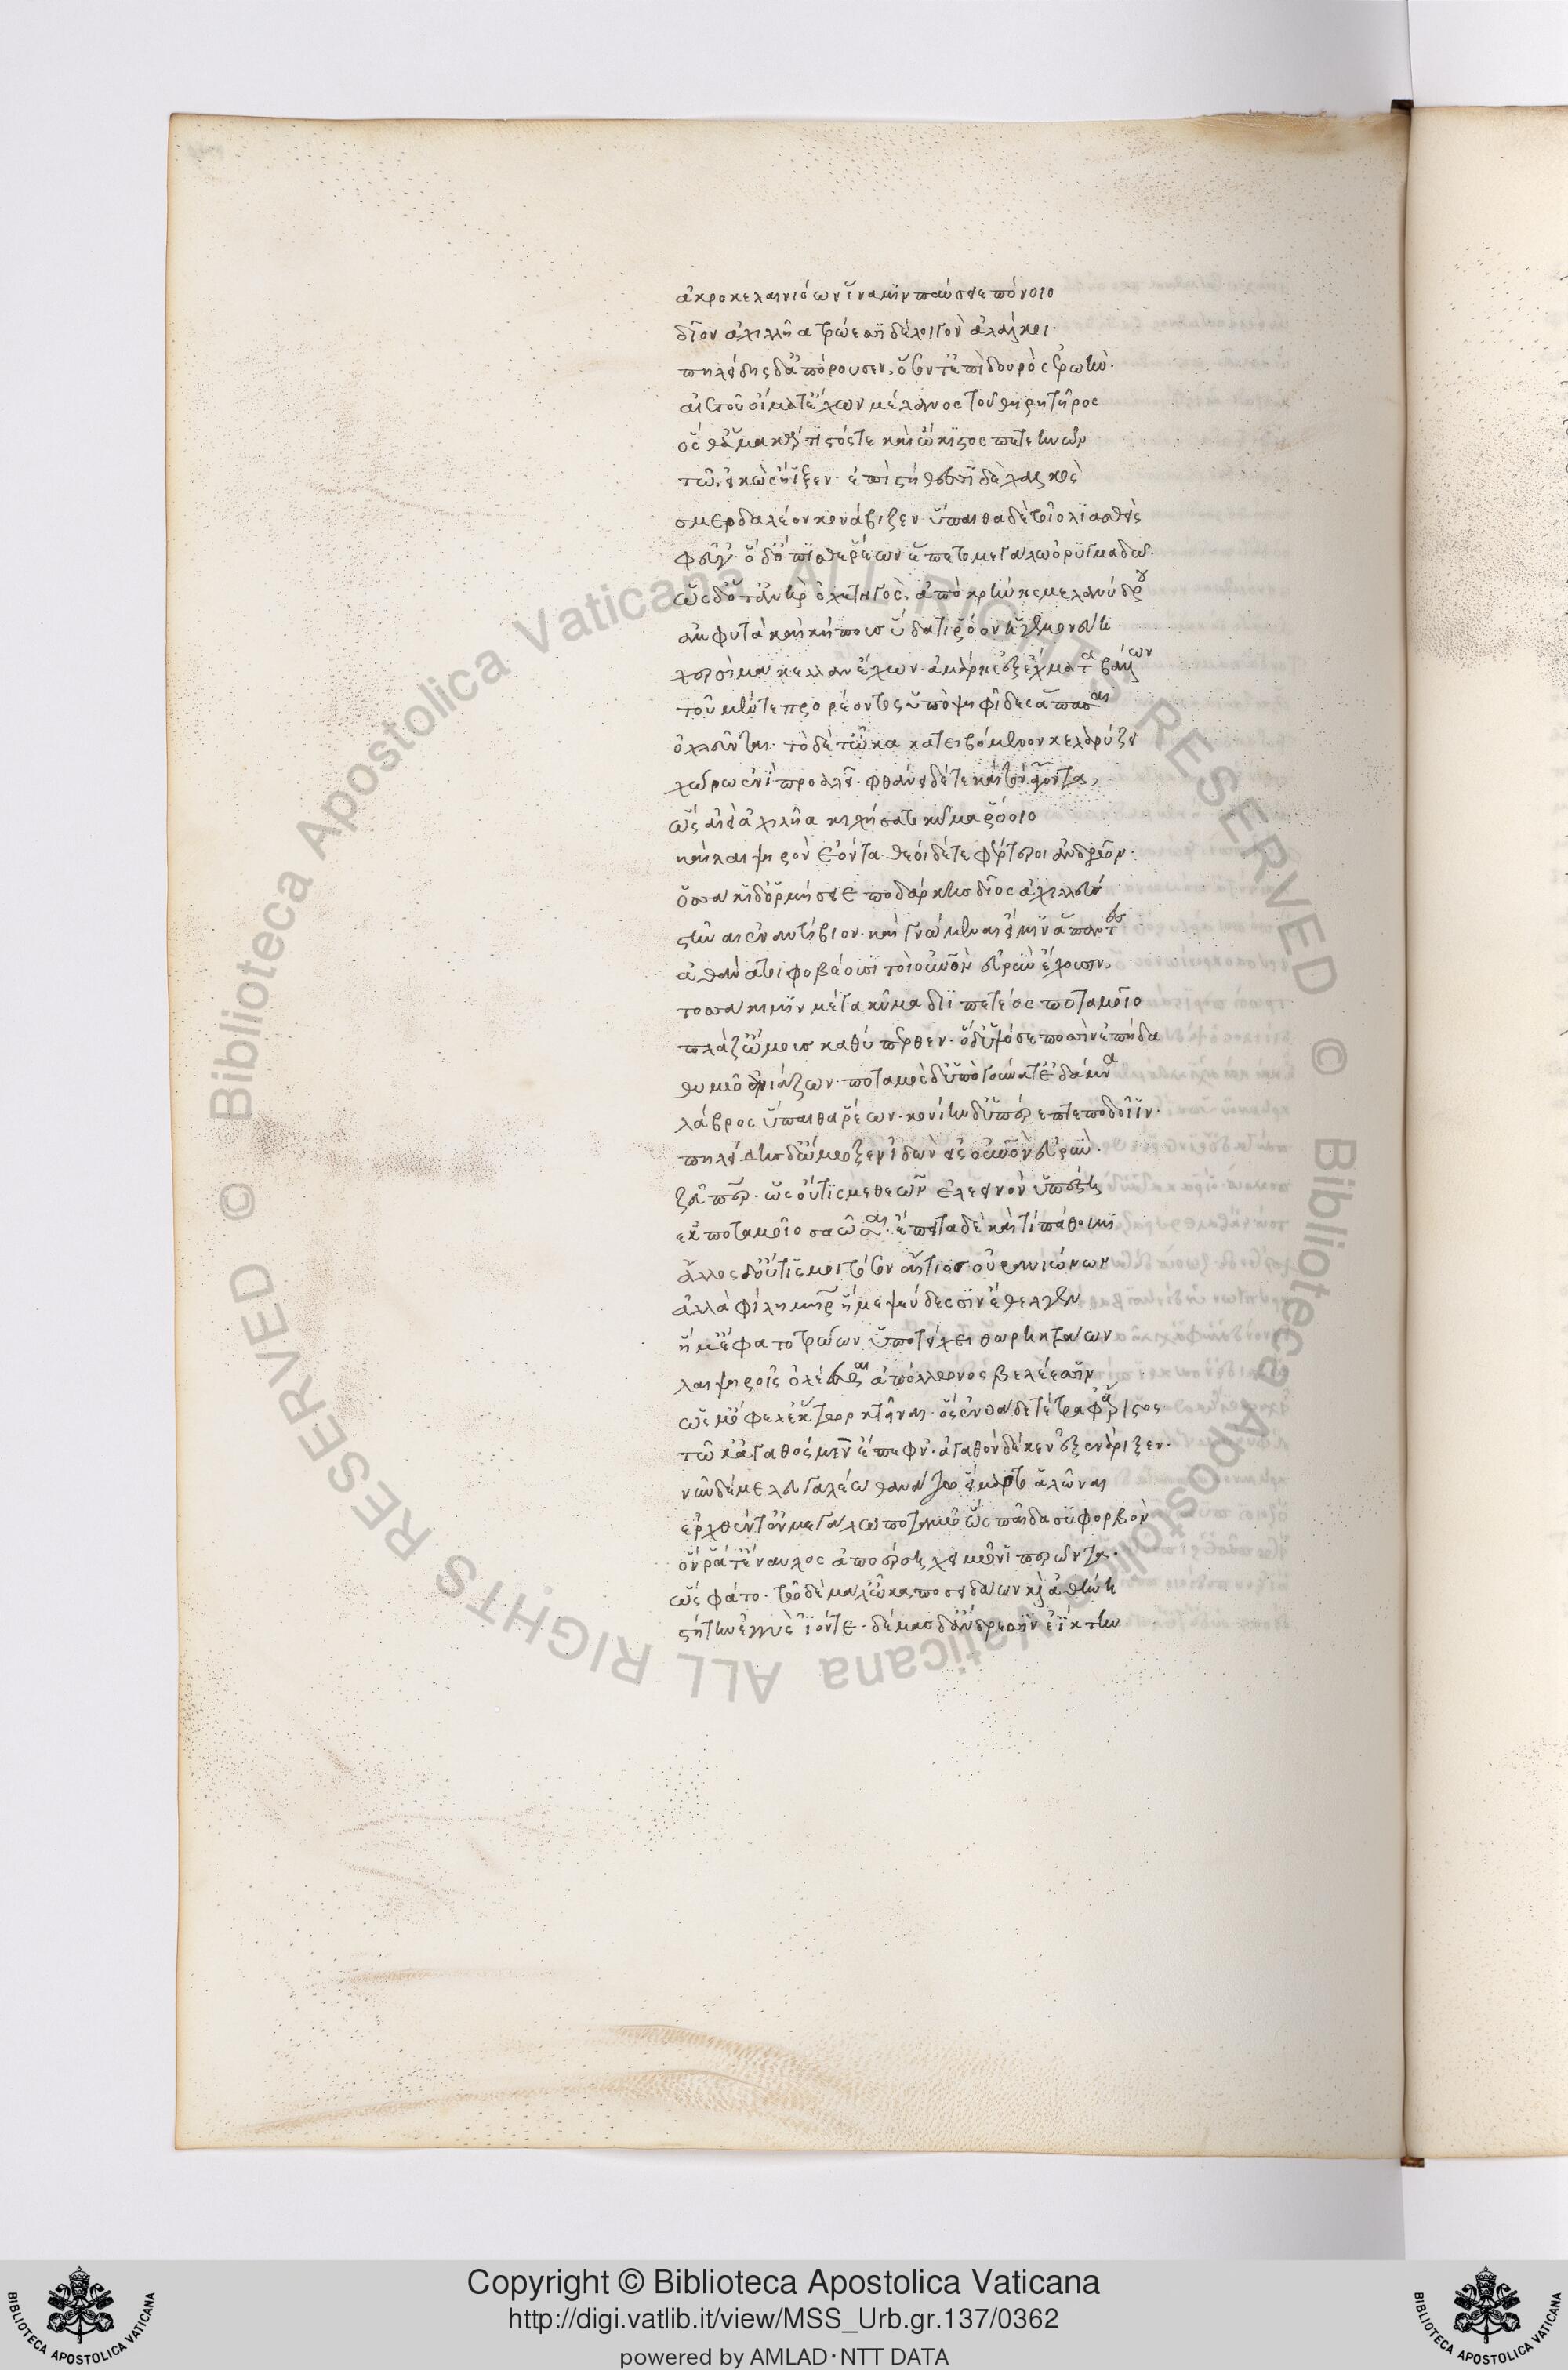 ἀκροκελαινιόων ἵνα μιν παύσειε πόνοιο
δῖον ἀχιλλῆα τρώεσσι δὲ λοιγὸν ἀλάλκοι·
πηλείδης δ' ἀπόρουσεν, ὅσον τ' ἐπὶ δουρὸς ἐρωὴ·
αἰετοῦ οἴματ' ἔχων μέλανος τοῦ θηρητῆρος
ὅς θ' ἅμα κάρτιστός τε καὶ ὤκιστος πετεηνῶν
τῶ εἰκὼς ἤιξεν· ἐπὶ στήθεσσι δὲ χαλκὸς
σμερδαλέον κονάβιζεν· ὕπαιθα δὲ τοῖο λιασθεὶς
φεῦγ'· ὁ δ' ὄπισθε ῥέων ἕπετο μεγάλω ὀρυμαγδῶ·
ὡς δ' ὅτ' ἀνὴρ ὀχετηγὸς, ἀπὸ κρήνης μελανύδρου
ἂμ φυτὰ καὶ κήπους ὕδατι ῥόον ἡγεμονεύη
χερσὶ μάκελλαν ἔχων· ἀμάρης ἐξ ἔχματα βάλλων
τοῦ μέν τε προρέοντος ὑπὸ ψηφῖδες ἅπασαι
ὀχλεῦνται· τὸ δέ τ' ὦκα κατειβόμενον κελαρύζει
χώρω ἐνὶ προαλεῖ· φθάνει δέ τε καὶ τὸν ἄγοντα,
ὣς αἰεὶ ἀχιλῆα κιχήσατο κῦμα ῥόοιο
καὶ λαιψηρὸν ἐόντα· θεοὶ δέ τε φέρτεροι ἀνδρῶν·
ὁσσάκι δ' ὁρμήσειε ποδάρκης δῖος ἀχιλλεὺς
στῆναι ἐναντίβιον· καὶ γνώμεναι εἴ μιν ἅπαντες
ἀθάνατοι φοβέουσι τοὶ οὐρανὸν εὐρὺν ἔχουσιν,
τοσσάκι μιν μέγα κῦμα διιπετέος ποταμοῖο
πλάζ' ὤμους καθύπερθεν· ὁ δ' ὑψόσε ποσσὶν ἐπήδα
θυμῶ ἀνιάζων· ποταμὸς δ' ὑπὸ γούνατ' ἐδάμνα
λάβρος ὕπαιθα ῥέων· κονίην δ' ὑπέρεπτε ποδοῖιν·
πηλείδης δ' ὤμωξεν ἰδὼν εἰς οὐρανὸν εὐρὺν·
ζεῦ πάτερ· ὡς οὔτις με θεῶν ἐλεεινὸν ὑπέστη
ἐκ ποταμοῖο σαῶσαι· ἔπειτα δὲ καὶ τί πάθοιμι
ἄλλος δ' οὔτις μοι τόσον αἴτιος οὐρανιώνων
ἀλλὰ φίλη μήτηρ ἥ με ψεύδεσσιν ἔθελγεν
ἥ μ' ἔφατο τρώων ὑπὸ τείχει θωρηκτάων
λαιψηροῖς ὀλέεσθαι ἀπόλλωνος βελέεσσιν
ὥς μ' ὄφελ' ἕκτωρ κτεῖναι· ὃς ἐνθάδε τέτραφ' ἄριστος
τῶ κ' ἀγαθὸς μὲν ἔπεφν'· ἀγαθὸν δέ κεν ἐξενάριξεν·
νῦν δέ με λευγαλέω θανάτω εἵμαρτο ἁλῶναι
ἐρχθέντ' ἐν μεγάλω ποταμῶ ὡς παῖδα συφορβὸν
ὅν ῥά τ' ἔναυλος ἀποέρση χειμῶνι περῶντα·
ὣς φάτο· τῶ δὲ μάλ' ὦκα ποσειδάων καὶ ἀθήνη
στήτην ἐγγὺς ἰόντε· δέμας δ' ἄνδρεσσιν ἐίκτην·
Copyright © Biblioteca Apostolica Vaticana
http://digi.vatlib.it/view/MSS_Urb.gr.137/0362
powered by AMLAD·NTT DATA
BIBLIOTECA APOSTOLICA VATICANA
BIBLIOTECA APOSTOLICA VATICANA
© Biblioteca Apostolica Vaticana ALL RIGHTS RESERVED © Biblioteca Apostolica Vaticana ALL RIGHTS RESERVED